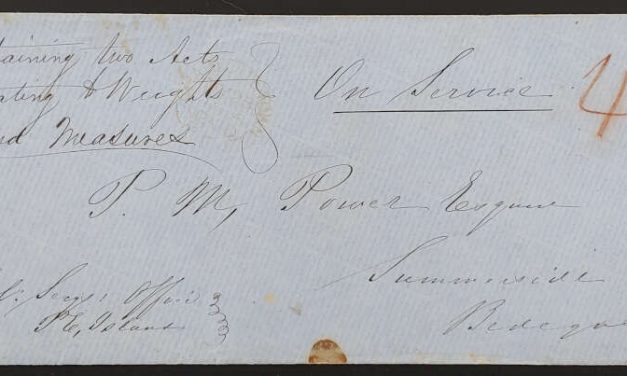 taining two Acts
ating to Weights
nd Measures
On Service
4
P. M, Power Esquire
Summerside
Bedeq
l: Secys: Office
P E, Island